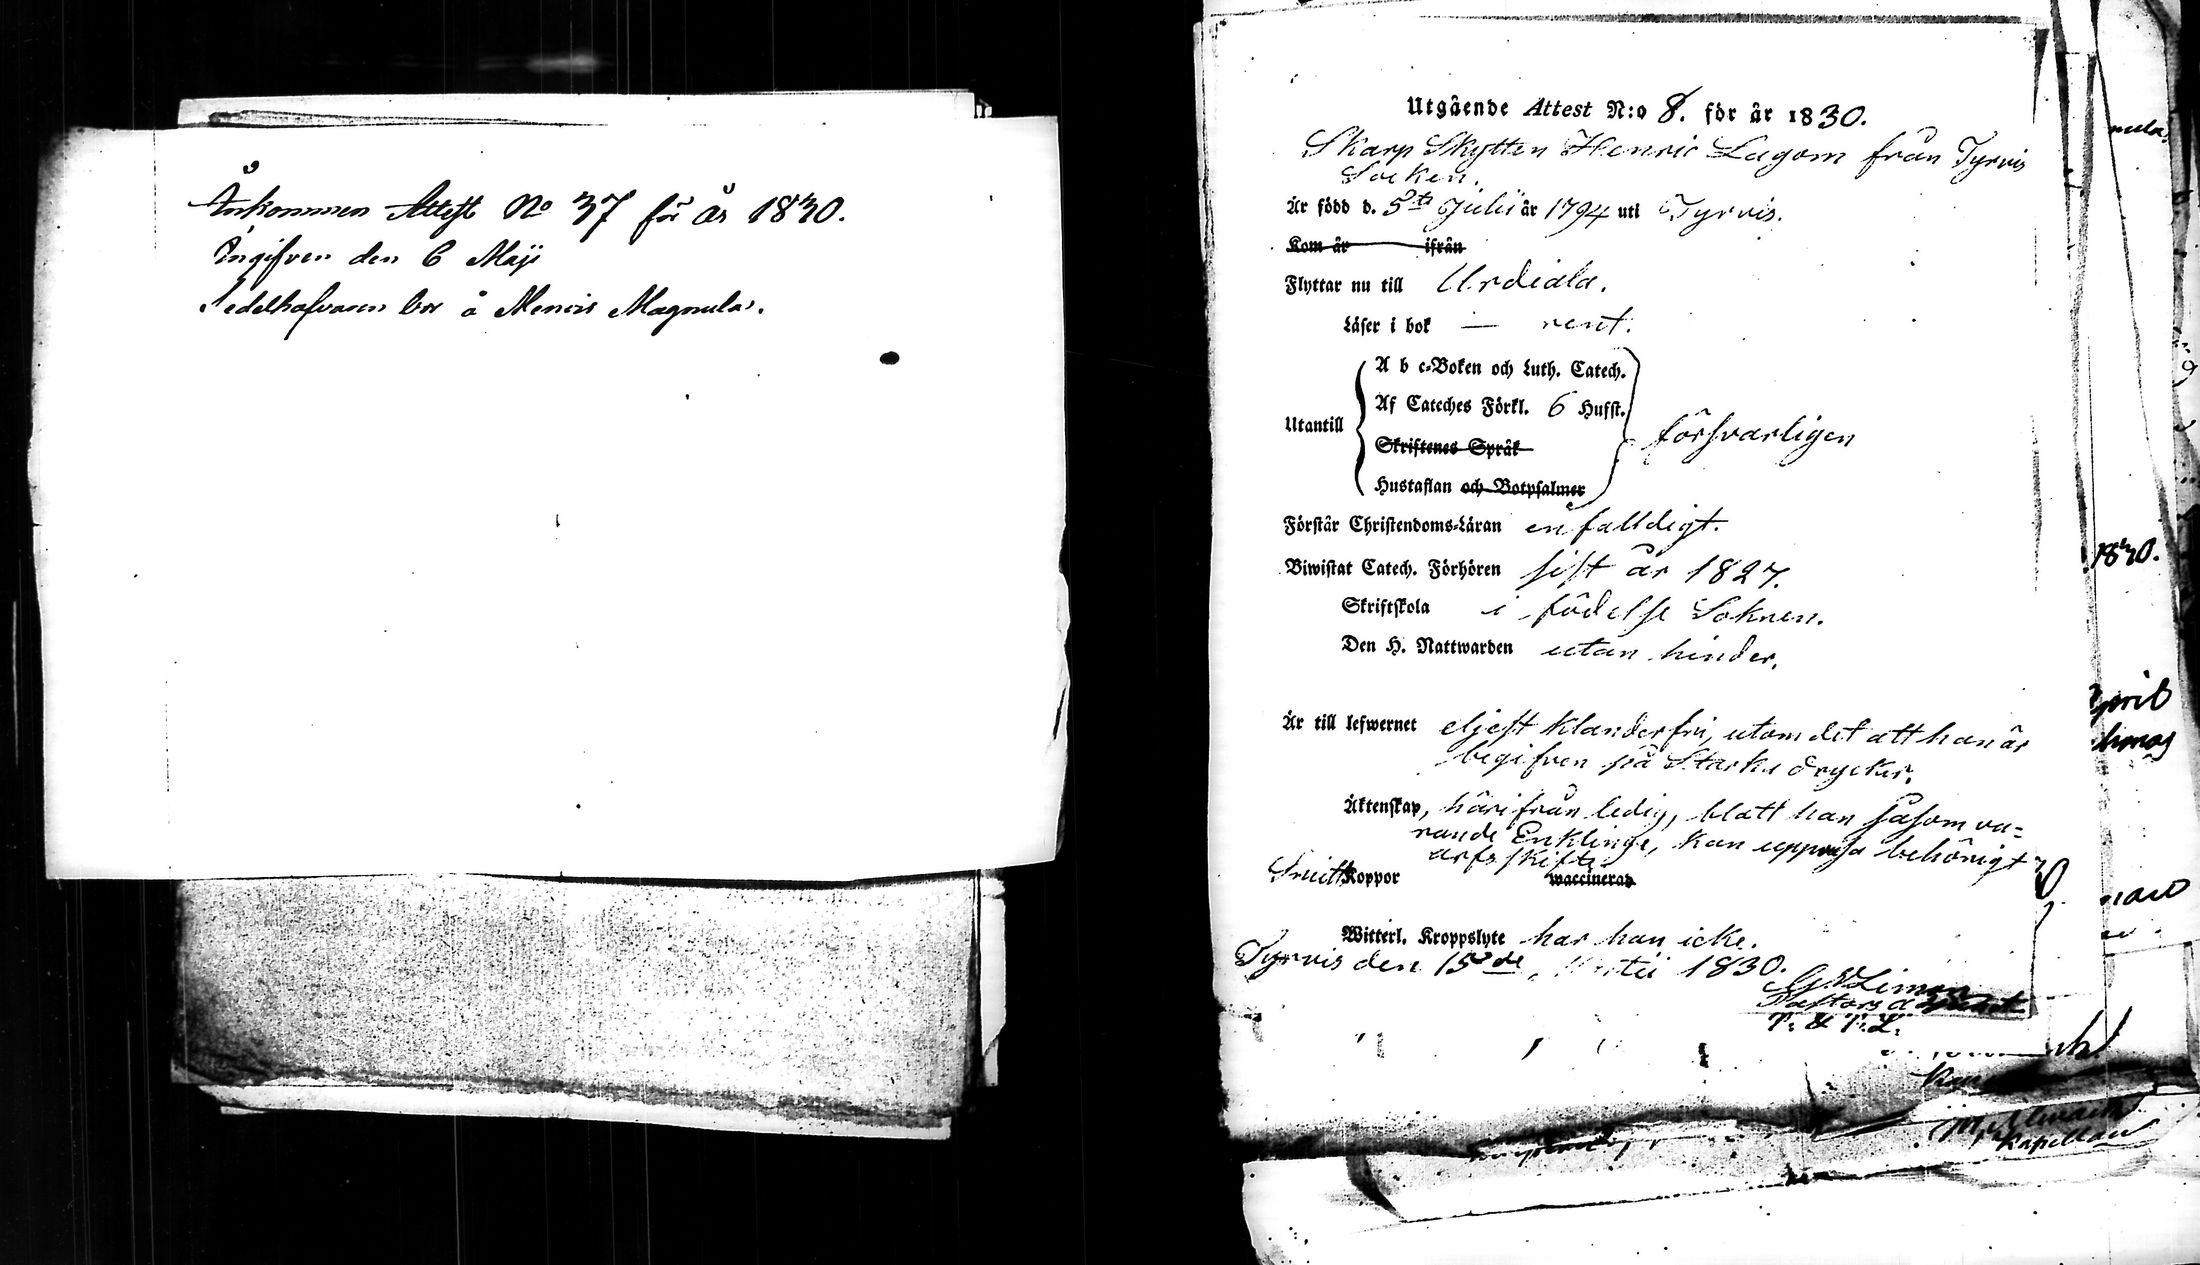 Ankommen Attest No 37 för år 1830.
Ingifven den 6 Maji
Sedelhafvaren bor å Menois Magnula.
Utgående Attest N:o 8. för år 1830.
Skarp Skytten Henric Lagom från Tyrvis
Socken.
Är född d. 5te Julii år 1794 uti Tyrvis.
Kom år ifrån
Flyttar nu till Urdiala.
Läser i bok — rent.
A b c-Boken och Luth. Catech.
Af Cateches Förkl. 6 Hufst.
Utantill försvarligen
Skriftenes Språk
Hustaflan och Botpsalmer
Förstår Christendoms-Läran enfalldigt.
Biwistat Catech. Förhören sist år 1827.
Skriftskola i födelse Soknen.
Den H. Nattwarden utan hinder.
Är till lefwernet eljest klanderfri, utom det att han är
begifven på Starka drycker.
Äktenskap, härifrån ledig, blott han såsom va=
rande Enklinge, kan uppvisa behörigt
arfsskifte
Koppor waccinerad
Witterl. Kroppslyte har han icke.
Tyrvis den 15de 1830.
G. Limon
Pastors
1830.
pril
Kapellan